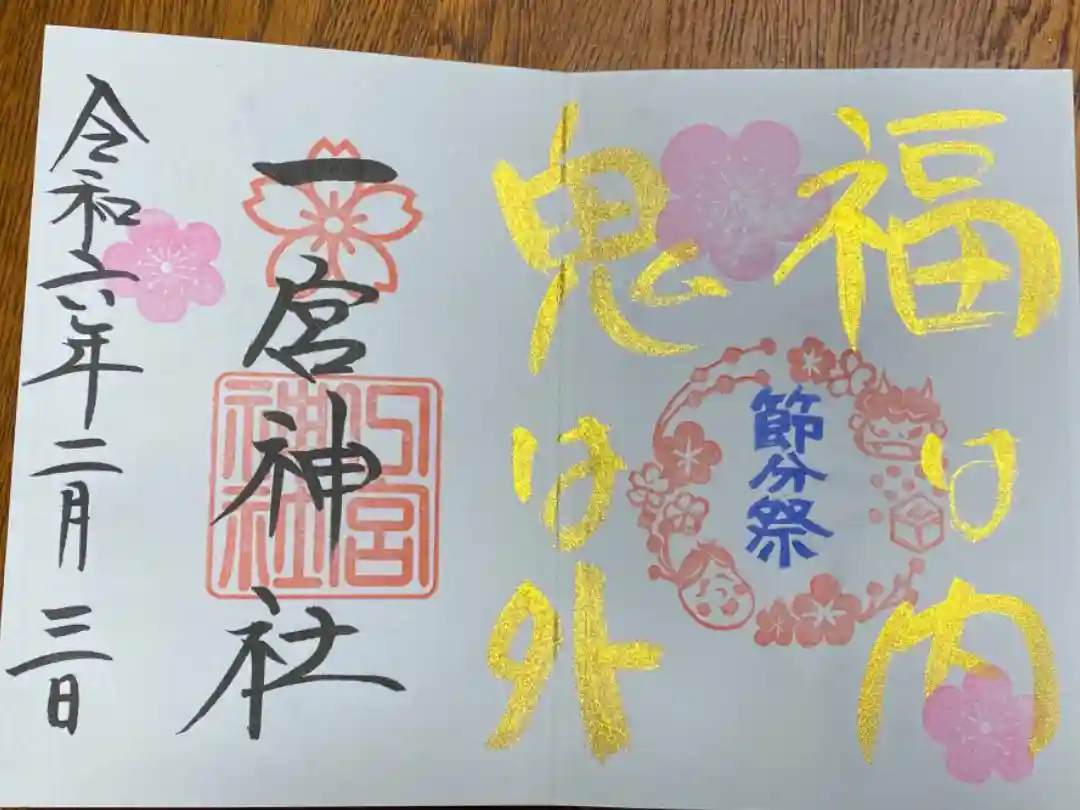 福は内
鬼は外
節分祭
一宮神社
一宮神社
令和六年二月三日